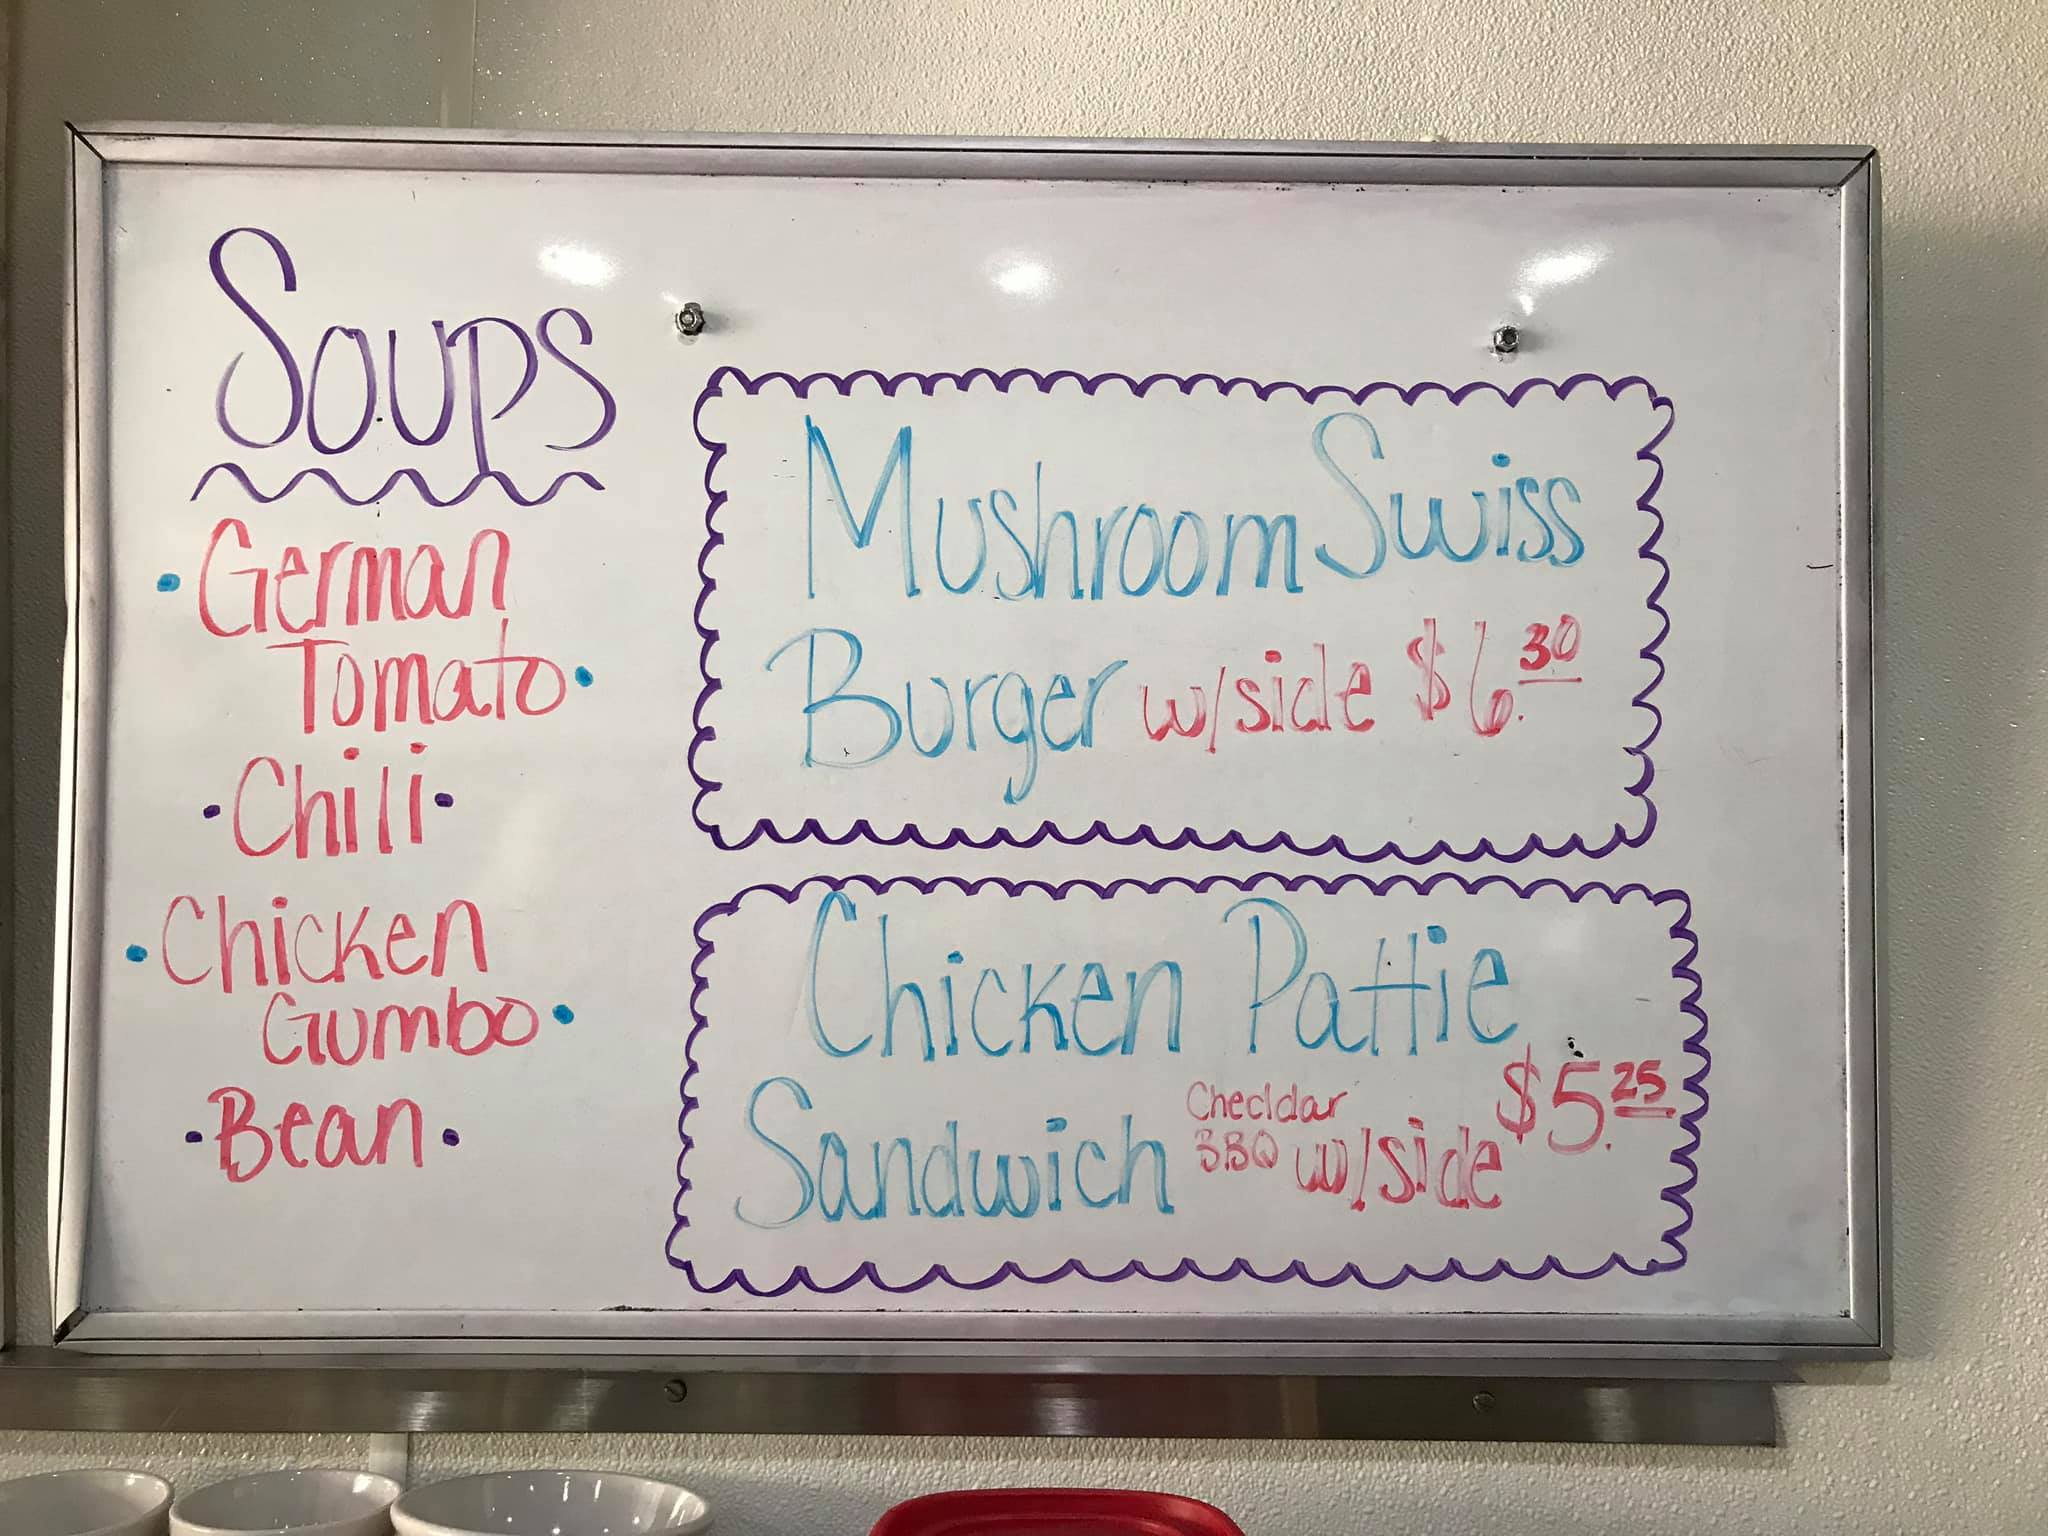 Soups
• German
Tomato •
• Chili •
• Chicken
Gumbo •
• Bean •
Mushroom Swiss
Burger w/side $6.30
Chicken Pattie
Sandwich Cheddar BBQ w/side $5.25